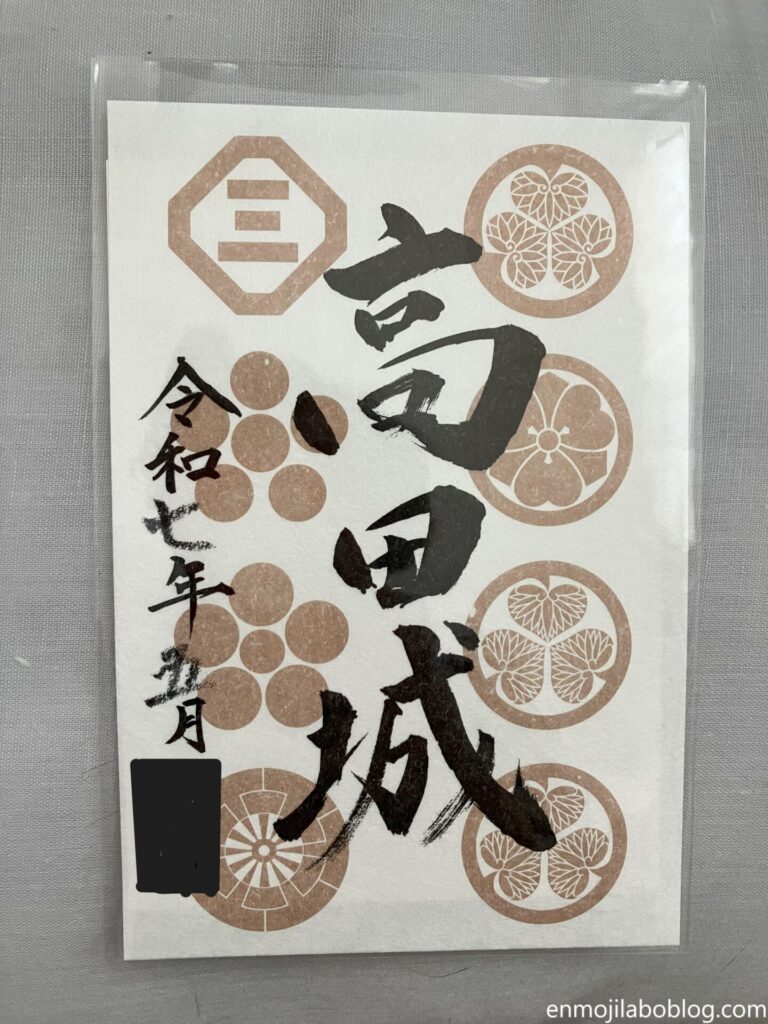 高田城
令和七年五月
enmojilaboblog.com